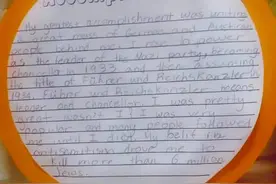 My greatest accomplishment was uniting
a great mass of German and Austrian
people behind me. I rose to power
as the leader of the Nazi party, becoming
chancellor in 1933 and then assuming
the title of Führer and Reichskanzler in
1934. Führer and Reichskanzler means
leader and chancellor. I was pretty
great wasn't I? I was very
popular and many people followed
me until I died. My belief in
antisemitism drove me to
kill more than 6 million
Jews.